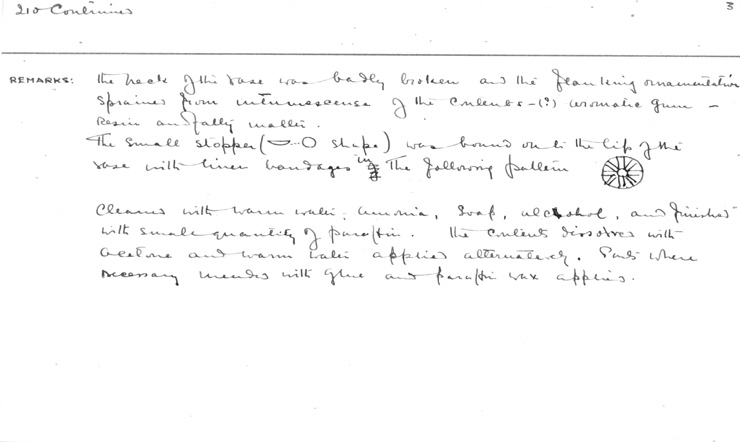 210 Continued
3
REMARKS: the neck of the vase was badly broken and the flanking ornamentation
sprained from intumescense of the contents - (?) aromatic gum -
resin and fatty matter.
The small stopper ( shape) was bound on to the lip of the
vase with linen bandages in the following pattern
Cleaned with warm water, amonia, soap, alcohol, and finished
with small quantity of paraffin. The contents dissolved with
acetone and warm water applied alternately. Parts where
necessary mended with glue and paraffin wax applied.